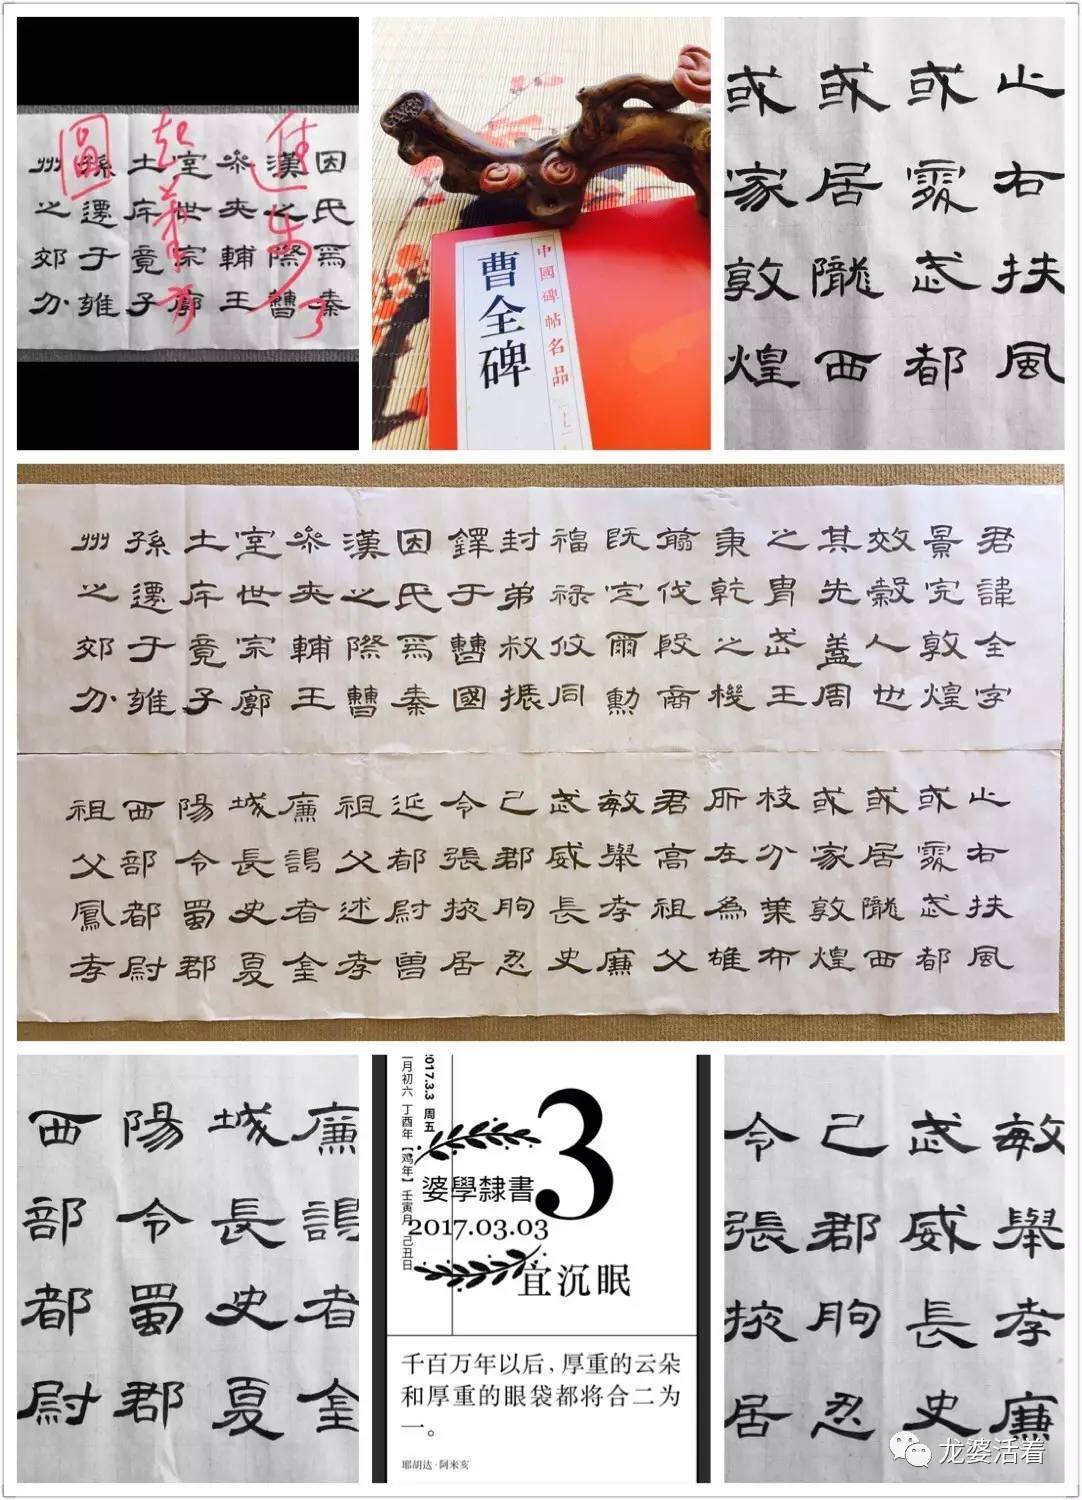 因氏為秦
漢之際曹
參夾輔王
室世宗廓
土斥竟子
孫遷于雍
州之郊分
進步了
起筆方
圓
中國碑帖名品
[十七]
曹全碑
止右扶風
或處武都
或居隴西
或家敦煌
君諱全字
景完敦煌
效穀人也
其先蓋周
之胄武王
秉乾之機
翦伐殷商
既定爾勳
福祿攸同
封弟叔振
鐸于曹國
因氏為秦
漢之際曹
參夾輔王
室世宗廓
土斥竟子
孫遷于雍
州之郊分
止右扶風
或處武都
或居隴西
或家敦煌
枝分葉布
所在為雄
君高祖父
敏舉孝廉
武威長史
巴郡朐忍
令張掖居
延都尉曾
祖父述孝
廉謁者金
城長史夏
陽令蜀郡
西部都尉
祖父鳳孝
廉謁者金
城長史夏
陽令蜀郡
西部都尉
2017.3.3 周五
二月初六 丁酉年【鸡年】壬寅月 己丑日
3
婆學隸書
2017.03.03
宜沉眠
千百万年以后，厚重的云朵
和厚重的眼袋都将合二为
一。
耶胡达·阿米亥
敏舉孝廉
武威長史
巴郡朐忍
令張掖居
龙婆活着